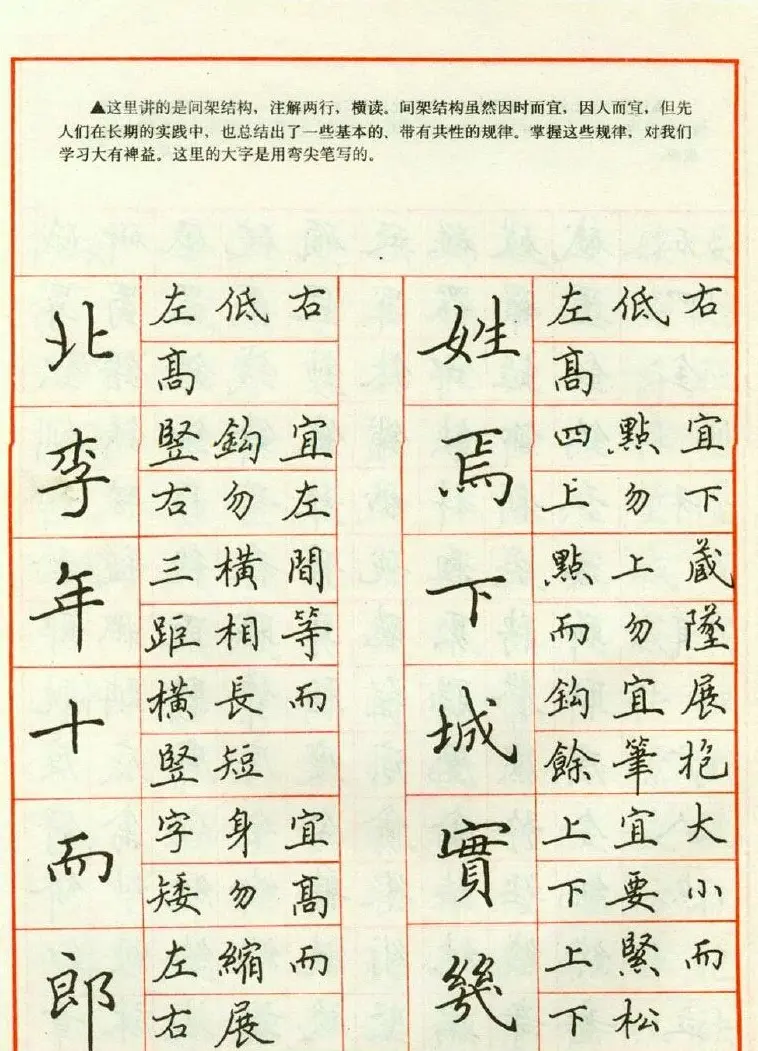 ▲这里讲的是间架结构，注解两行，横读。间架结构虽然因时而宜，因人而宜，但先
人们在长期的实践中，也总结出了一些基本的、带有共性的规律。掌握这些规律，对我们
学习大有裨益。这里的大字是用弯尖笔写的。
北
左低右
髙
李
竪鈎宜
右勿左
年
三横間
距相等
十
横長而
竪短
而
字身宜
矮勿髙
郎
左縮而
右展
姓
左低右
髙
焉
四點宜
上勿下
下
點上藏
而勿墜
城
鈎宜展
餘筆抱
實
上宜大
下要小
幾
上緊而
下松